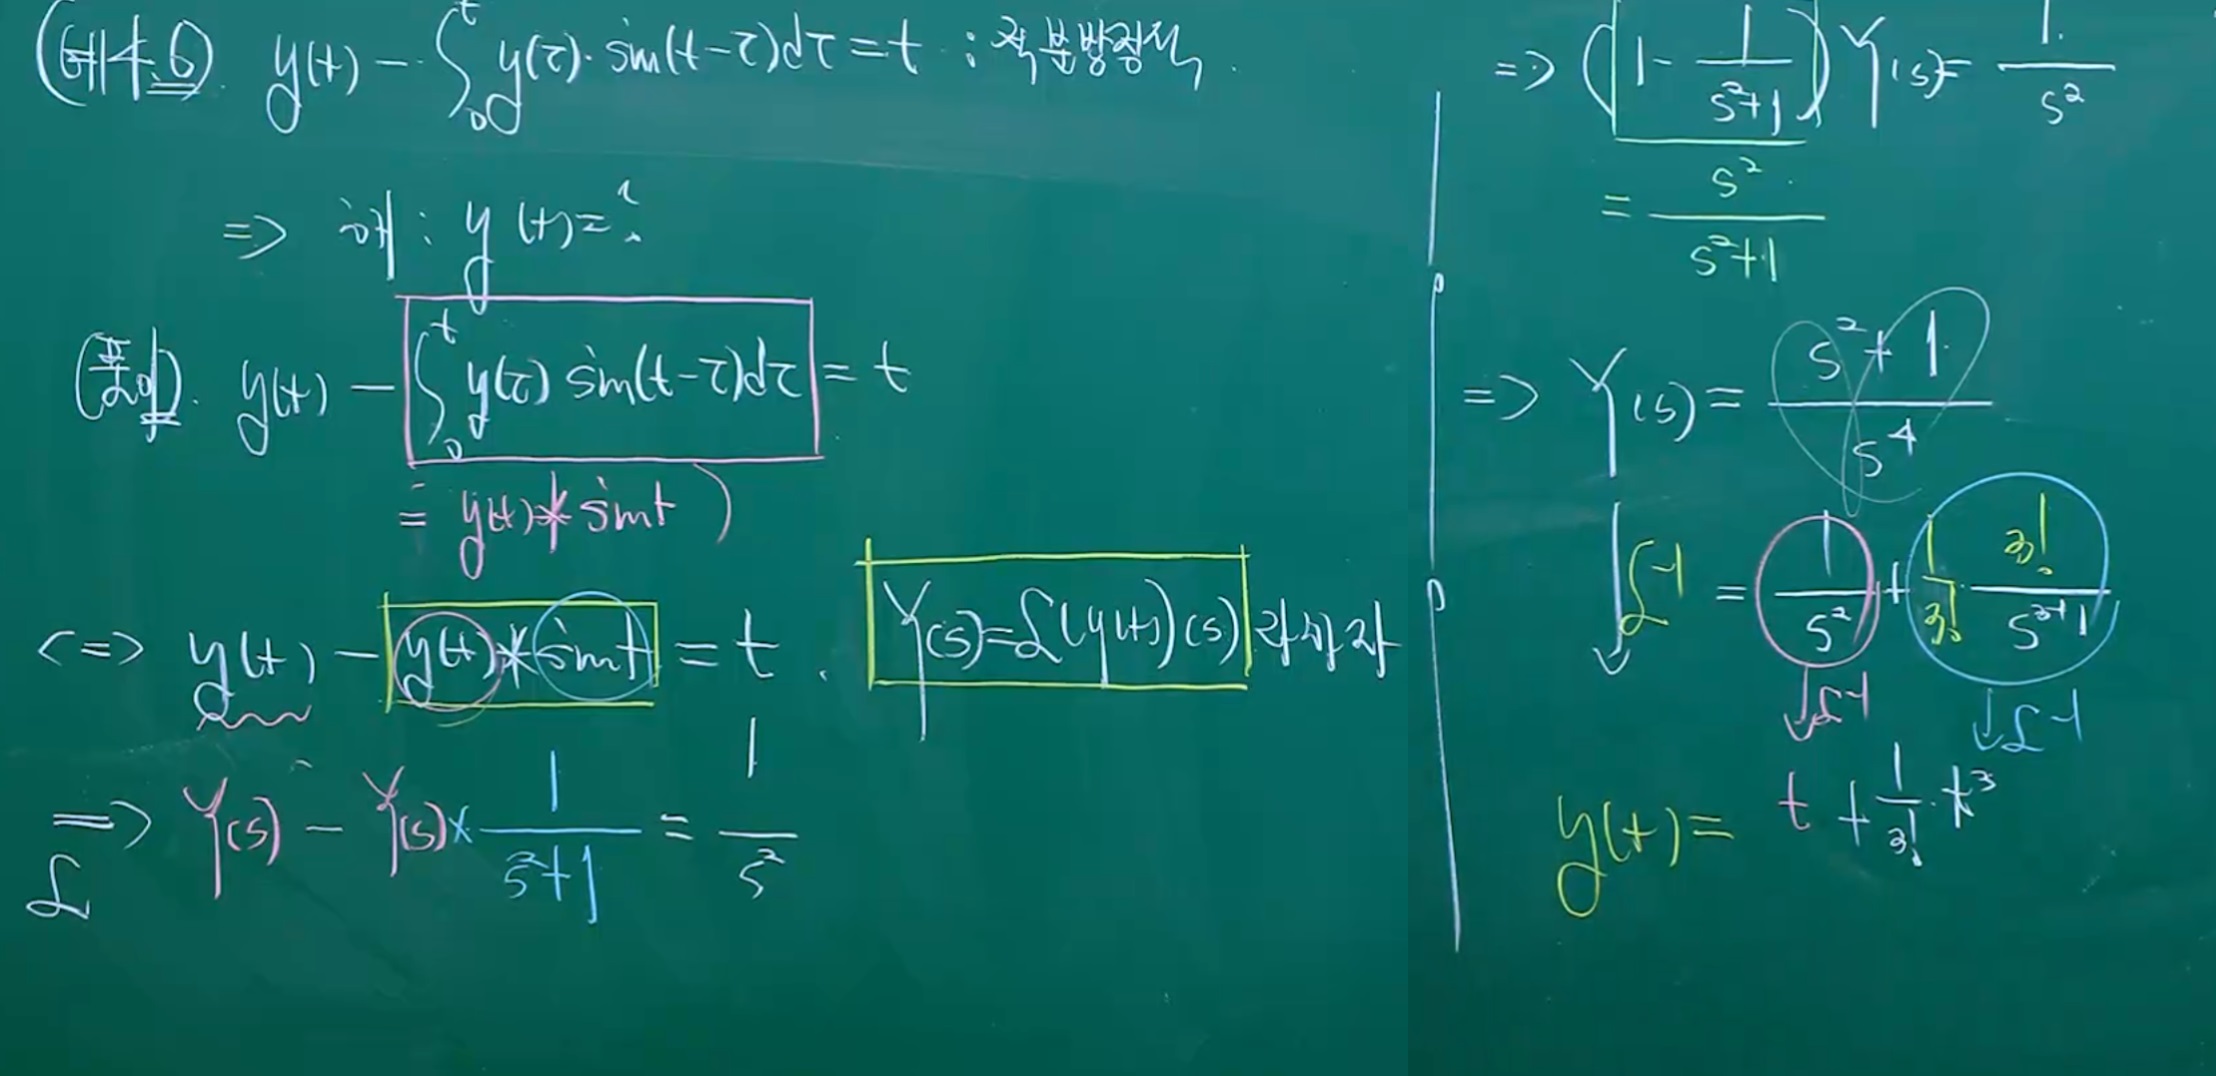 (예4.6). y(t) - ∫₀ᵗ y(τ)· sin(t-τ)dτ = t : 적분방정식.
=> 해 : y(t) = ?
(풀이). y(t) - ∫₀ᵗ y(τ) sin(t-τ)dτ = t
= y(t) * sint
<=> y(t) - y(t) * sint = t . Y(s) = ℒ(y(t))(s) 라 하자
=> ℒ Y(s) - Y(s) × 1/(s²+1) = 1/s²
=> (1 - 1/(s²+1)) Y(s) = 1/s²
= s²/(s²+1)
=> Y(s) = (s²+1)/s⁴
↓ ℒ⁻¹ = 1/s² + 1/3! · 3!/s³⁺¹
↓ℒ⁻¹ ↓ℒ⁻¹
y(t) = t + 1/3! · t³